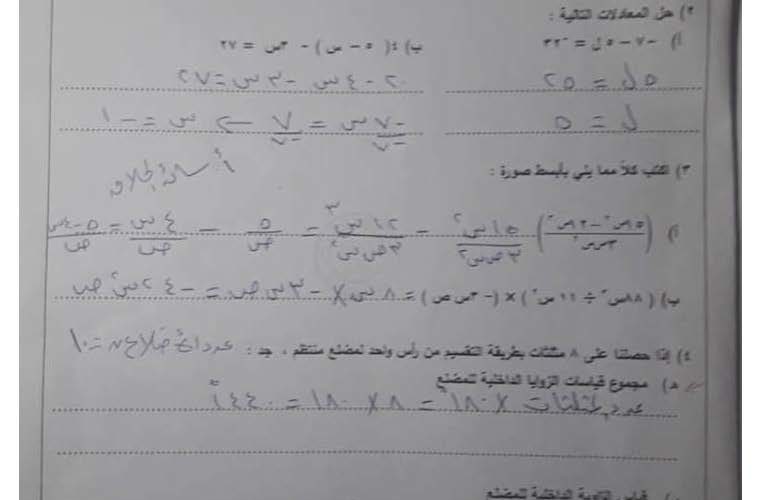 ٢) حل المعادلات التالية :
أ) -٧ - ٥ ل = -٣٢ ب) ٤( ٥ - س ) - ٣س = ٢٧
٥ ل = ٢٥ ٢٠ - ٤ س - ٣ س = ٢٧
ل = ٥ -٧ س / -٧ = ٧ / -٧ ← س = -١
٣) اكتب كلاً مما يلي بأبسط صورة :
أ) = ٥ / ص - ٤ س / ص = ٥ - ٤س / ص
ب) ( ٨٨س ÷ ١١ س ) × (- ٣س ص ) = ٨ س × - ٣ س ص = - ٢٤ س ص
٤) إذا حصلنا على ٨ مثلثات بطريقة التقسيم من رأس واحد لمضلع منتظم ، جد : عدد أضلاعه = ١٠
مجموع قياسات الزوايا الداخلية للمضلع
عدد المثلثات × ١٨٠ = ٨ × ١٨٠ = ١٤٤٠
قياس الزاوية الداخلية للمضلع